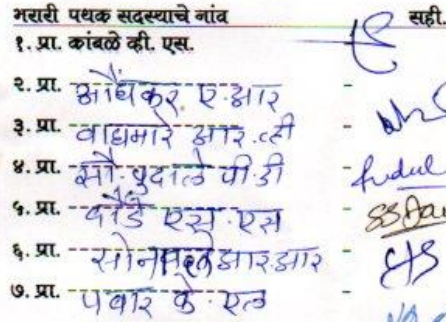 भरारी पथक सदस्याचे नांव सही.
१. प्रा. कांबळे व्ही. एस.
२. प्रा. औंधकर ए. आर
३. प्रा. वाघमारे आर. व्ही
४. प्रा. सौ. पुदाले पी. डी
५. प्रा. दोडे एस. एस
६. प्रा. आर. आर
७. प्रा. पवार के. एल